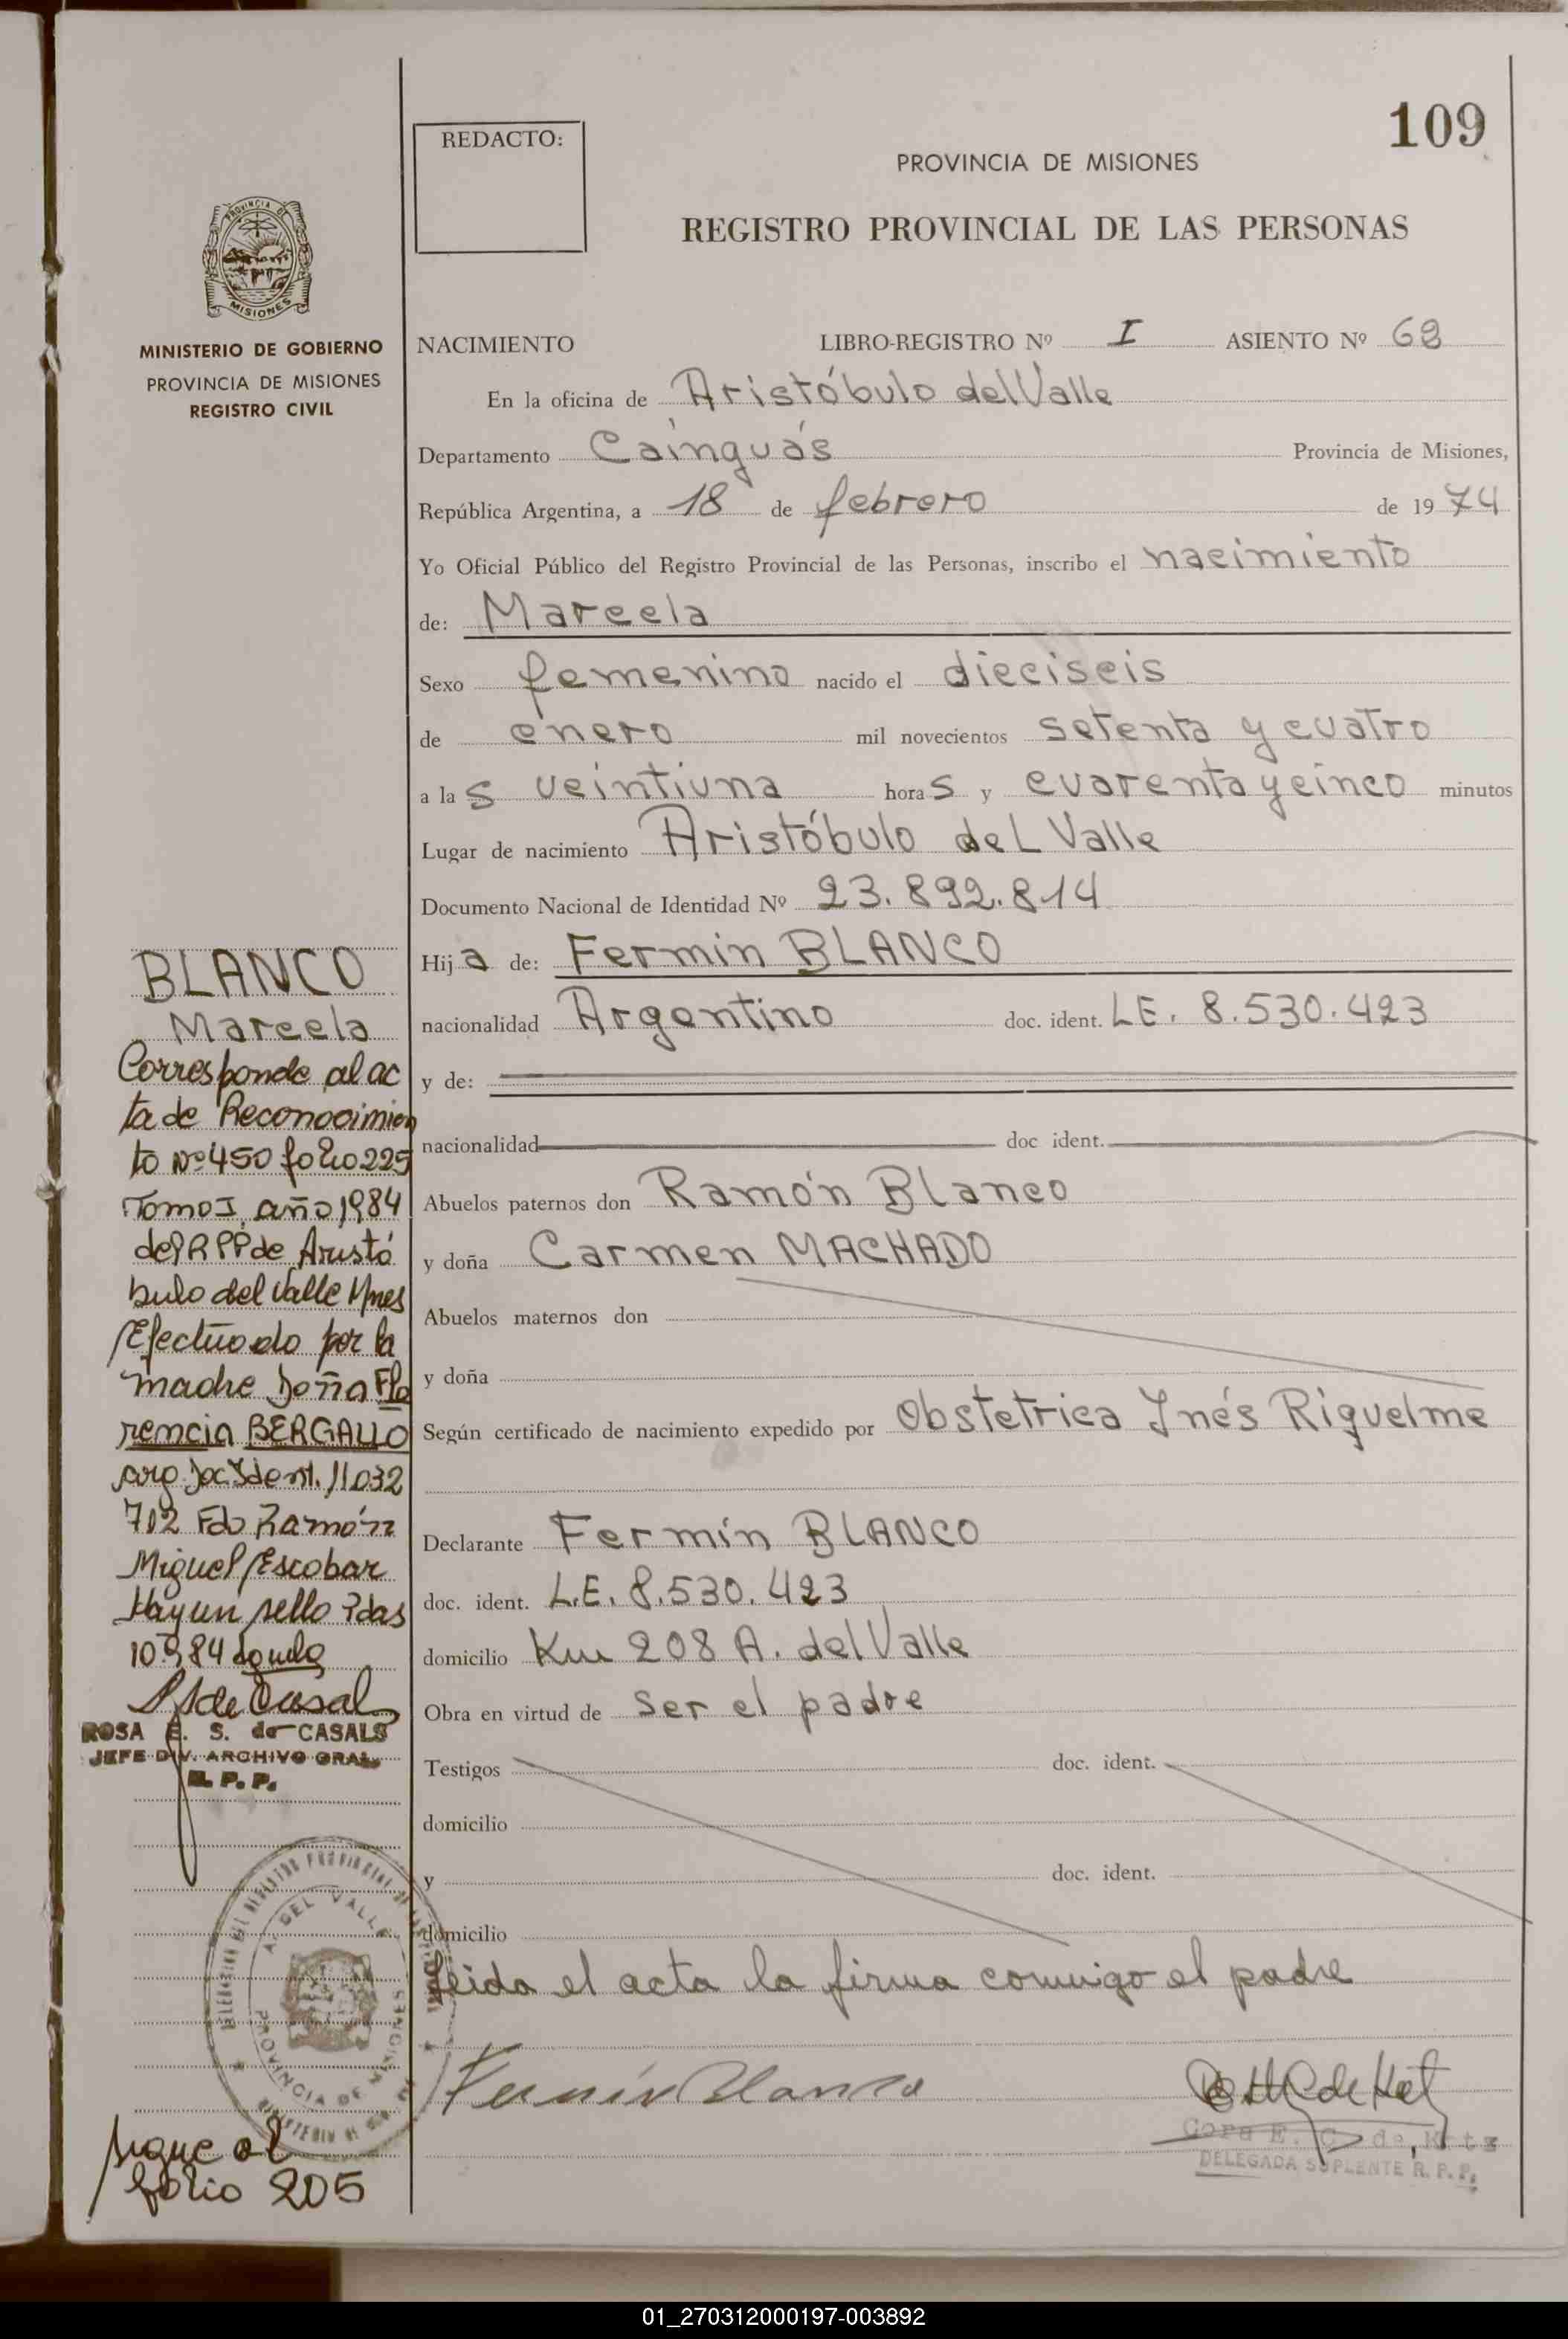 109
REDACTO:
PROVINCIA DE MISIONES
REGISTRO PROVINCIAL DE LAS PERSONAS
MISIONES
MINISTERIO DE GOBIERNO
PROVINCIA DE MISIONES
REGISTRO CIVIL
NACIMIENTO LIBRO-REGISTRO Nº I ASIENTO Nº 68
En la oficina de Aristóbulo del Valle
Departamento Cainguás Provincia de Misiones,
República Argentina, a 18 de febrero de 1974
Yo Oficial Público del Registro Provincial de las Personas, inscribo el nacimiento
de: Marcela
Sexo femenino nacido el dieciseis
de enero mil novecientos setenta y cuatro
a las veintiuna horas y cuarenta y cinco minutos
Lugar de nacimiento Aristóbulo del Valle
Documento Nacional de Identidad Nº 23.892.814
Hija de: Fermin BLANCO
nacionalidad Argentino doc. ident. LE. 8.530.423
y de:
nacionalidad doc ident.
Abuelos paternos don Ramón Blanco
y doña Carmen MACHADO
Abuelos maternos don
y doña
Según certificado de nacimiento expedido por Obstetrica Inés Riquelme
Declarante Fermín BLANCO
doc. ident. L.E. 8.530.423
domicilio Km 208 A. del Valle
Obra en virtud de ser el padre
Testigos doc. ident.
domicilio
y doc. ident.
domicilio
Leida el acta la firma conmigo el padre
Fermín Blanco
Cora E. C. de
DELEGADA SUPLENTE R. P. P.
BLANCO
Marcela
Corresponde al ac
ta de Reconocimien
to Nº 450 folio 225
Tomo I, año 1984
del RPP de Aristó
bulo del Valle Mnes
Efectuado por la
madre Doña Flo
rencia BERGALLO
arg. Doc. Ident. 11032
702 Fdo Ramón
Miguel Escobar
Hay un sello Pdas
10 9 84
ROSA E. S. de CASALS
JEFE DIV. ARCHIVO GRAL.
R. P. P.
A. DEL VALLE
PROVINCIA DE MISIONES
sigue al
folio 205
01_270312000197-003892